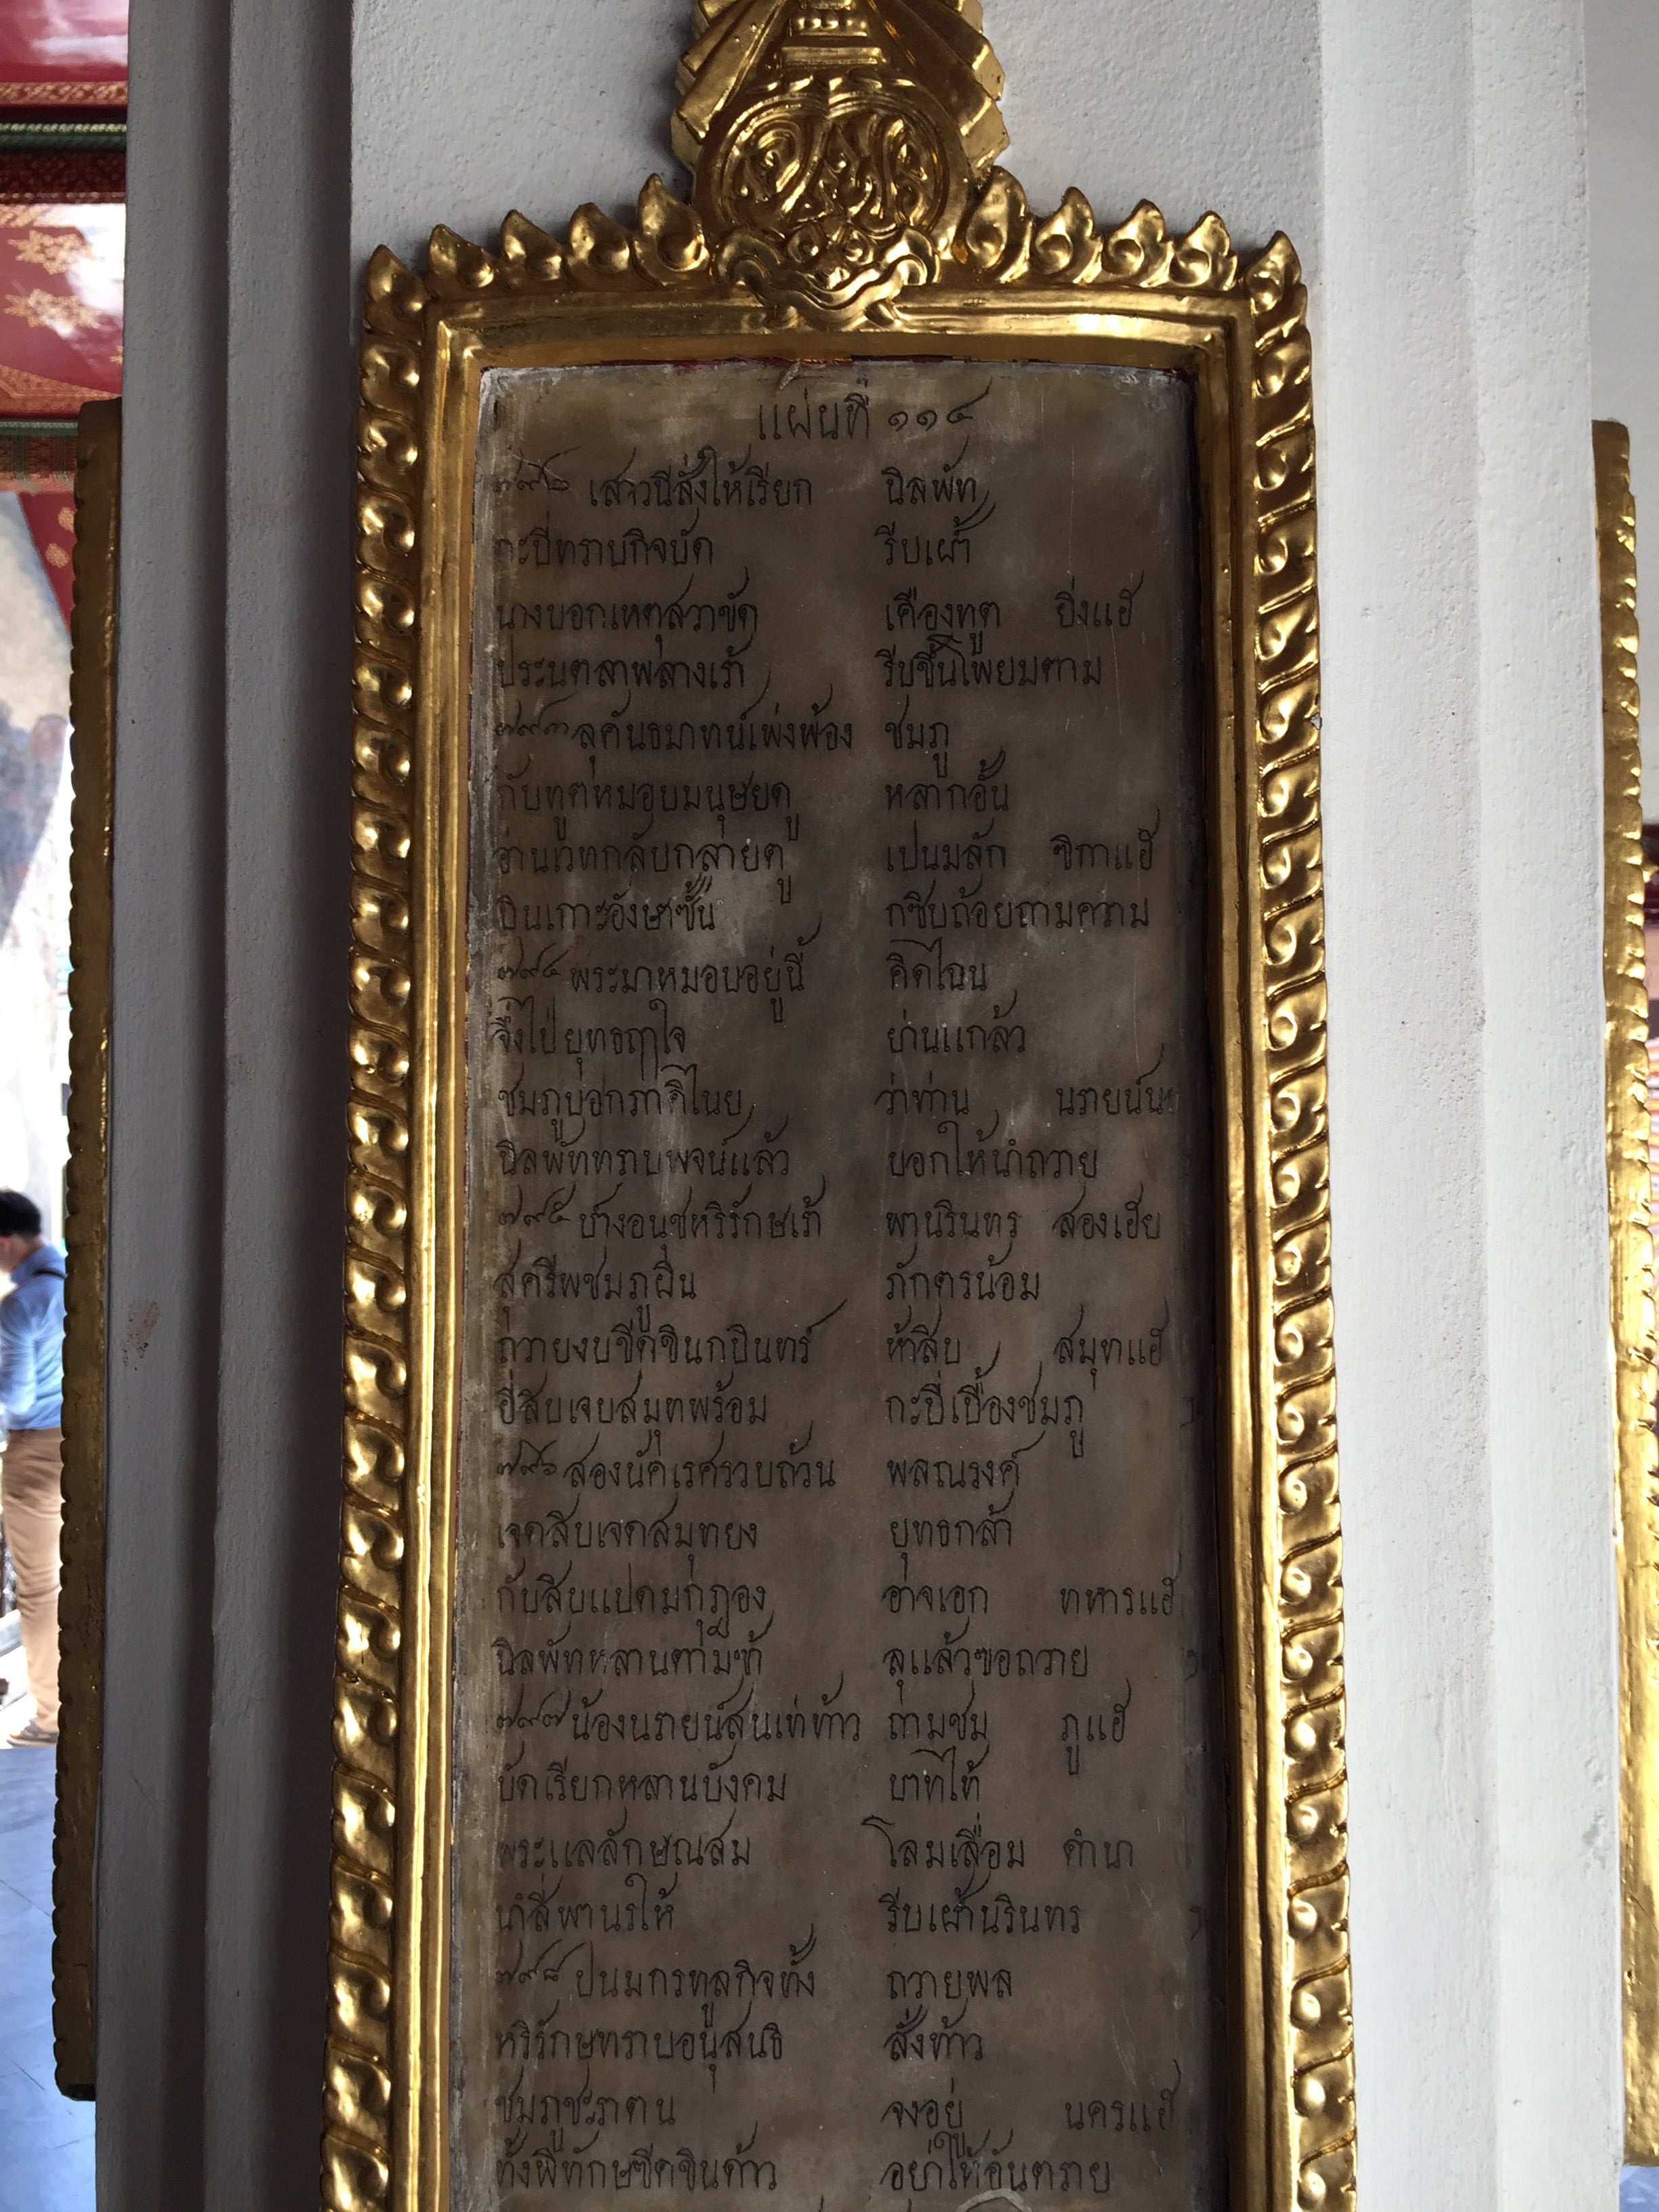 แผ่นที่ ๑๑๔
๗๙๒ เสาวนีสั่งให้เรียก นิลพัท
กะบี่ทราบกิจบัด รีบเฝ้า
นางบอกเหตุสวาขัด เคืองทูต ยิ่งแฮ
ประนตลาพลางเร้า รีบขึ้นโพยมตาม
๗๙๓ ลุคันธมาทน์เพ่งพ้อง ชมภู
กับทูตหมอบมนุษยดู หลากอั้น
อ่านเวทกลับกลายตู เปนมลัก ขิกาแฮ
บินเกาะอังษาซั้น กซิบถ้อยถามความ
๗๙๔ พระมาหมอบอยู่นี้ คิดไฉน
จึ่งไป่ยุทธฤาใจ ย่านแกล้ว
ชมภูบอกภาคิไนย ว่าท่าน นรายน์นา
นิลพัททราบพจน์แล้ว บอกให้นำถวาย
๗๙๕ ข้างอนุชหริรักษเร้า พานรินทร สองเฮย
สุครีพชมภูผิน ภักตรน้อม
ถวายงบขีดขินกบินทร์ ห้าสิบ สมุทแฮ
ยี่สิบเจบสมุทพร้อม กะบี่เบื้องชมภู
๗๙๖ สองนัคเรศรวบถ้วน พลณรงค์
เจดสิบเจดสมุทยง ยุทธกล้า
กับสิบแปดมกุฎอง อาจเอก ทหารแฮ
นิลพัทหลานตามข้า ลุแล้วขอถวาย
๗๙๗ น้องนรายน์สนเท่ห์ท้าว ถามชม ภูแฮ
บัดเรียกหลานบังคม บาทไท้
พระแลลักษณสม โลมเลื่อม ดำนา
นำสี่พานรให้ รีบเฝ้านรินทร
๗๙๘ ปนมกรทูลกิจทั้ง ถวายพล
หริรักษทราบอนุสนธิ สั่งท้าว
ชมภูชะราตน จงอยู่ นครแฮ
ทั้งพิทักษขีดขินด้าว อย่าให้อันตราย